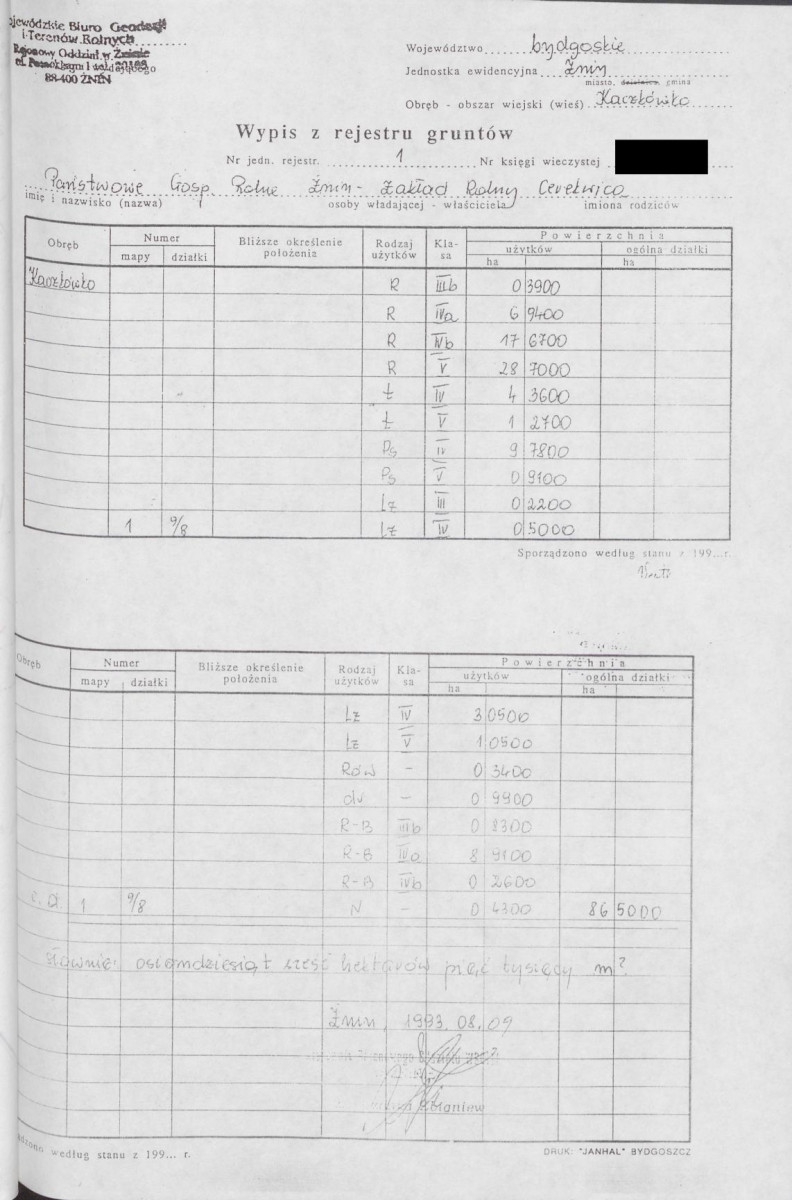 Wojewódzkie Biuro Geodezji
i Terenów Rolnych
Rejonowy Oddział w Żninie
88-400 ŻNIN
Województwo bydgoskie
Jednostka ewidencyjna Żnin
miasto, dzielnica, gmina
Obręb - obszar wiejski (wieś) Kaczkówko
Wypis z rejestru gruntów
Nr jedn. rejestr. 1 Nr księgi wieczystej
Państwowe Gosp. Rolne Żnin - Zakład Rolny Cerekwica
imię i nazwisko (nazwa) osoby władającej - właściciela imiona rodziców
Obręb Numer Bliższe określenie położenia Rodzaj użytków Kla-sa Powierzchnia
mapy działki użytków ogólna działki
ha ha
Kaczkówko R IIIb 0 3900
R IVa 6 9400
R IVb 17 6700
R V 28 7000
Ł IV 4 3600
Ł V 1 2700
Ps IV 9 7800
Ps V 0 9100
Lz III 0 2200
1 9/8 Lz IV 0 5000
Sporządzono według stanu z 199...r.
Obręb Numer Bliższe określenie położenia Rodzaj użytków Kla-sa Powierzchnia
mapy działki użytków ogólna działki
ha ha
Lz IV 3 0500
Lz V 1 0500
Rów - 0 3400
dr - 0 9900
R-B IIIb 0 8300
R-B IVa 8 9100
R-B IVb 0 2600
c.d. 1 9/8 N - 0 4300 86 5000
słownie: osiemdziesiąt sześć hektarów pięć tysięcy m²
Żnin, 1993.08.09
Zbigniew
według stanu z 199... r.
DRUK: "JANHAL" BYDGOSZCZ